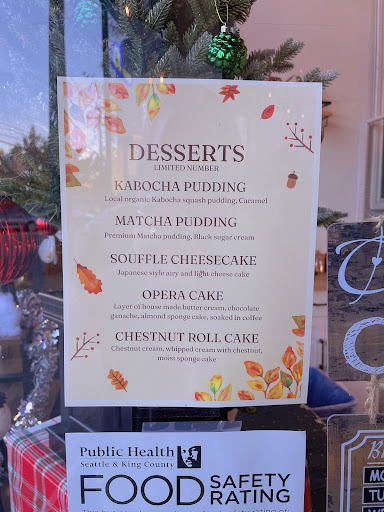 DESSERTS
LIMITED NUMBER
KABOCHA PUDDING
Local organic Kabocha squash pudding, Caramel
MATCHA PUDDING
Premium Matcha pudding, Black sugar cream
SOUFFLE CHEESECAKE
Japanese style airy and light cheese cake
OPERA CAKE
Layer of house made butter cream, chocolate
ganache, almond sponge cake, soaked in coffee
CHESTNUT ROLL CAKE
Chestnut cream, whipped cream with chestnut,
moist sponge cake
Public Health
Seattle & King County
FOOD SAFETY
RATING